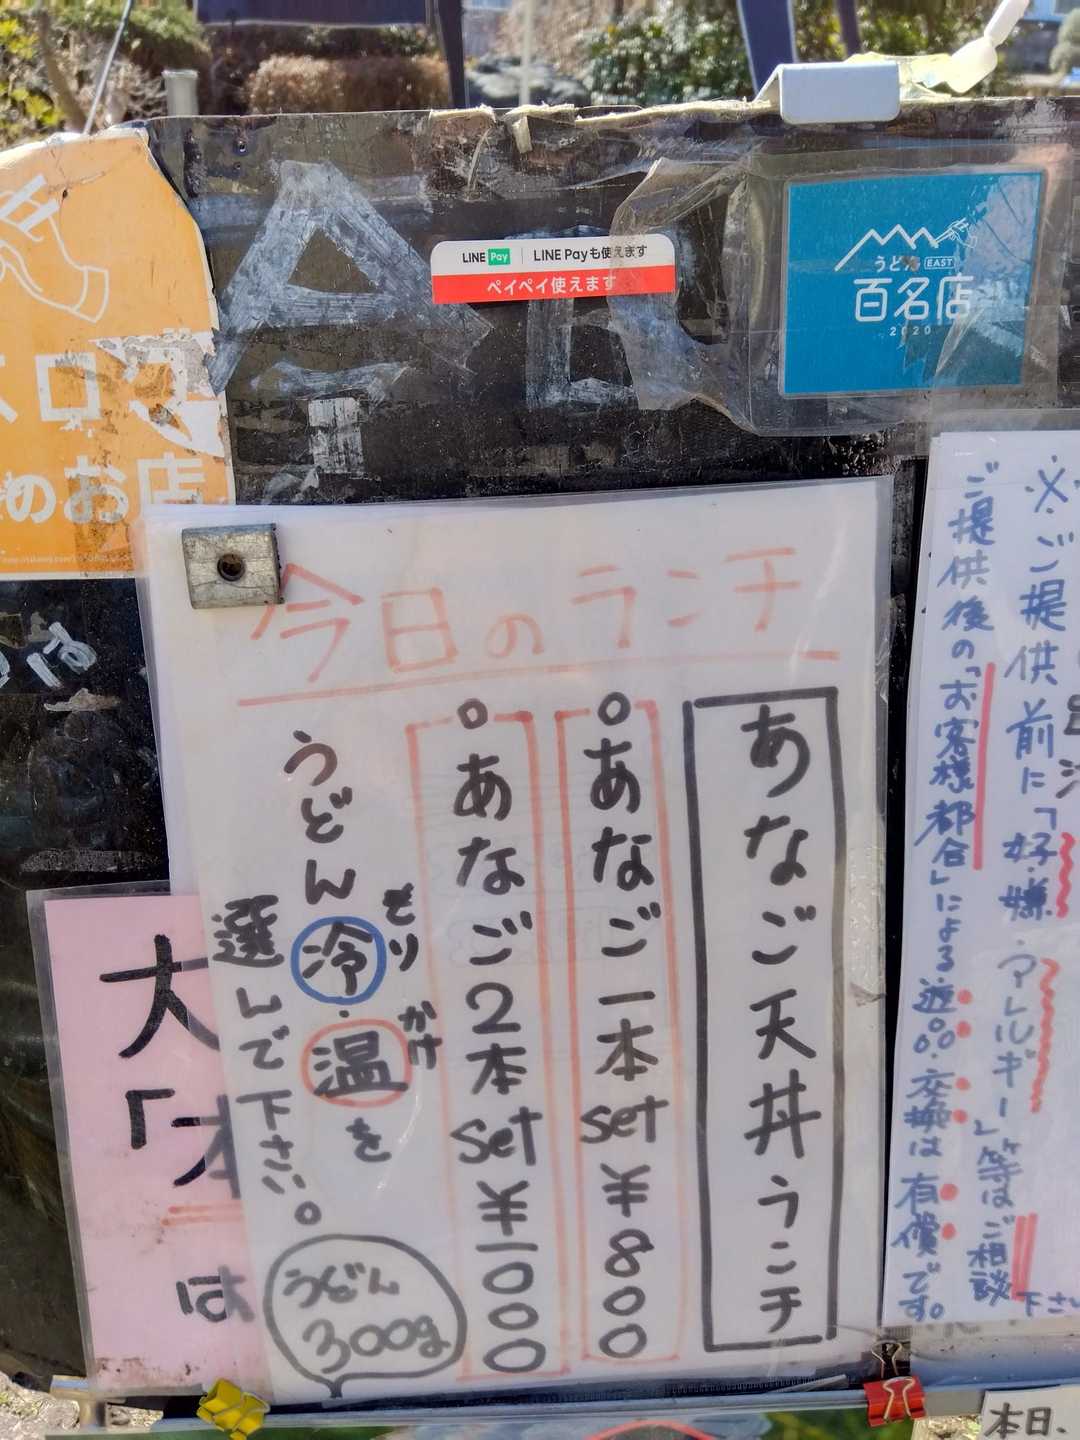 LINE Pay LINE Payも使えます
ペイペイ使えます
うどん EAST
百名店
2020
ログ
のお店
今日のランチ
あなご天丼ランチ
あなご一本set ¥800
あなご2本set ¥1000
うどん冷・温を
もり かけ
選んで下さい。
うどん
300g
※ご提供前に「好・嫌・アレルギー」等はご相談下さい
ご提供後の「お客様都合」による返品・交換は有償です。
大
「本
は
本日、